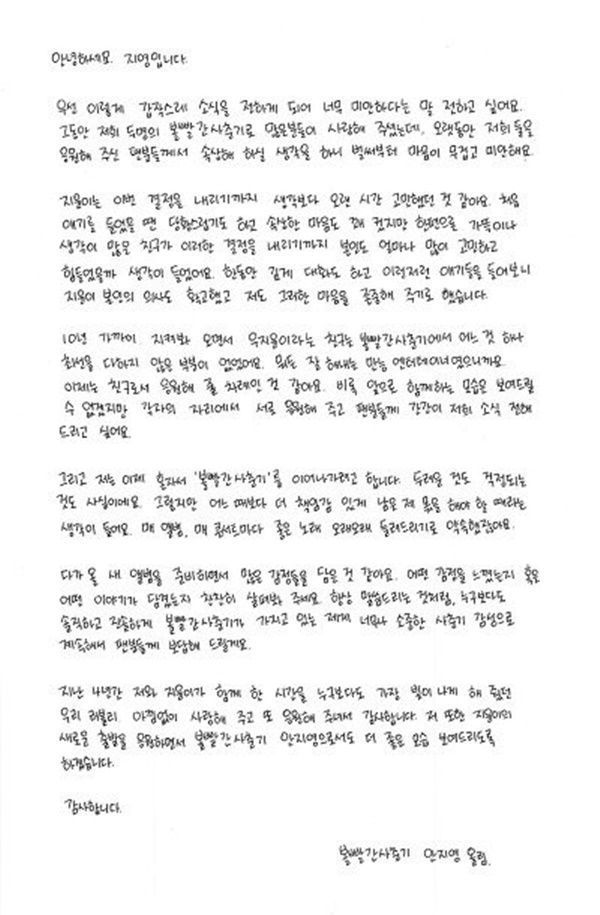 안녕하세요. 지영입니다.
우선 이렇게 갑작스레 소식을 전하게 되어 너무 미안하다는 말 전하고 싶어요.
그동안 저희 두명의 볼빨간사춘기로 많은분들이 사랑해 주셨는데, 오랫동안 저희들을
응원해 주신 팬분들께서 속상해 하실 생각을 하니 벌써부터 마음이 무겁고 미안해요.
지윤이는 이번 결정을 내리기까지 생각보다 오랜 시간 고민했던 것 같아요. 처음
얘기를 들었을 땐 당황스럽기도 하고 속상한 마음도 꽤 컸지만 한편으로 가뜩이나
생각이 많은 친구가 이러한 결정을 내리기까지 본인도 얼마나 많이 고민하고
힘들었을까 생각이 들었어요. 한동안 깊게 대화도 하고 이런저런 얘기들을 들어보니
지윤이 본인의 의사도 확고했고 저도 그러한 마음을 존중해 주기로 했습니다.
10년 가까이 지켜봐 오면서 우지윤이라는 친구는 볼빨간사춘기에서 어느 것 하나
최선을 다하지 않은 부분이 없었어요. 뭐든 잘 해내는 만능 엔터테이너였으니까요.
이제는 친구로서 응원해 줄 차례인 것 같아요. 비록 앞으로 함께하는 모습은 보여드릴
수 없겠지만 각자의 자리에서 서로 응원해 주고 팬분들께 간간이 저희 소식 전해
드리고 싶어요.
그리고 저는 이제 혼자서 '볼빨간사춘기'를 이어나가려고 합니다. 두려운 것도 걱정되는
것도 사실이에요. 그렇지만 어느 때보다 더 책임감 있게 남은 제 몫을 해야 할 때라는
생각이 들어요. 매 앨범, 매 콘서트마다 좋은 노래 오래오래 들려드리기로 약속했잖아요.
다가올 새 앨범을 준비하면서 많은 감정들을 담은 것 같아요. 어떤 감정을 느꼈는지 혹은
어떤 이야기가 담겼는지 찬찬히 살펴봐 주세요. 항상 말씀드리는 것처럼, 누구보다도
솔직하고 진솔하게 볼빨간사춘기가 가지고 있는 제게 너무나 소중한 사춘기 감성으로
계속해서 팬분들께 보답해 드릴게요.
지난 4년간 저와 지윤이가 함께 한 시간을 누구보다도 가장 빛이나게 해 줬던
우리 러볼리 아낌없이 사랑해 주고 또 응원해 주셔서 감사합니다. 저 또한 지윤이의
새로운 출발을 응원하면서 볼빨간사춘기 안지영으로서도 더 좋은 모습 보여드리도록
하겠습니다.
감사합니다.
볼빨간사춘기 안지영 올림.